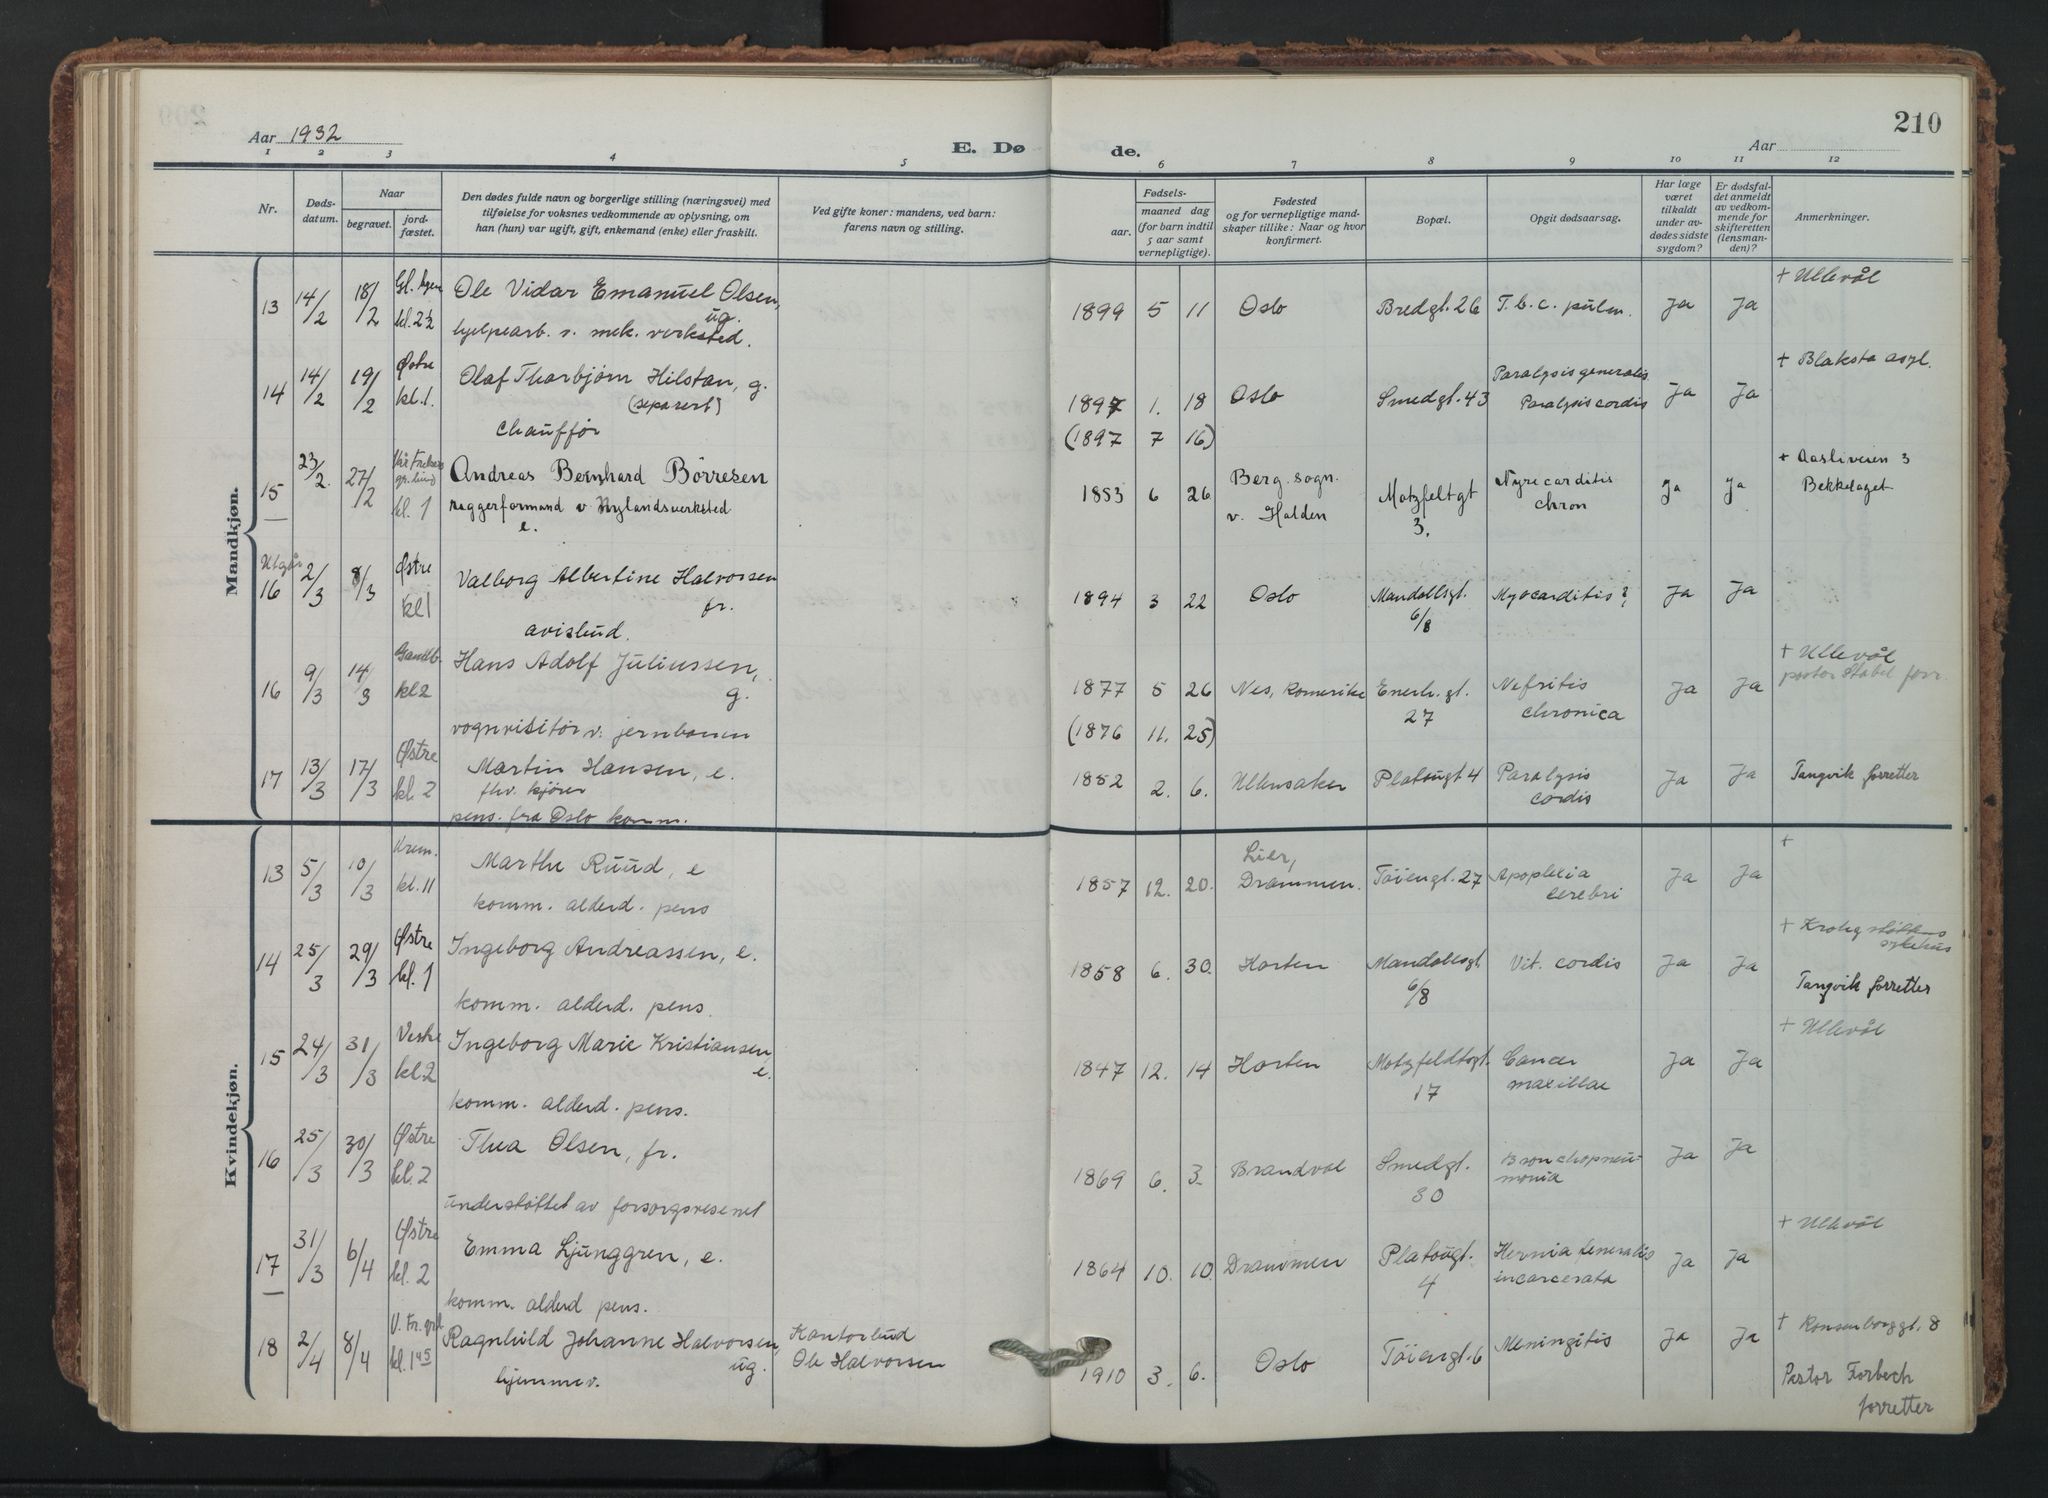 210
Aar 1932
E. Dø
de.
Aar
1 2 3 4 5 6 7 8 9 10 11 12
Nr.
Døds-
datum.
Naar
begravet.
jord-
fæstet.
Den dødes fulde navn og borgerlige stilling (næringsvei) med
tilføielse for voksnes vedkommende av oplysning, om
han (hun) var ugift, gift, enkemand (enke) eller fraskilt.
Ved gifte koner: mandens, ved barn:
farens navn og stilling.
Fødsels-
aar.
maaned dag
(for barn indtil
5 aar samt
vernepligtige).
Fødested
og for vernepligtige mand-
skaper tillike: Naar og hvor
konfirmert.
Bopæl.
Opgit dødsaarsag.
Har læge
været
tilkaldt
under av-
dødes sidste
sygdom?
Er dødsfal-
det anmeldt
av vedkom-
mende for
skifteretten
(lensman-
den)?
Anmerkninger.
Mandkjøn.
13 14/2 18/2 kl. 2½ Ole Vidar Emanuel Olsen, ug.
hjelpearb. v. mek. verksted.
1899 5 11 Oslo Bredgt. 26 T.b.c. pulm. Ja Ja + Ullevål
14 14/2 19/2 Østre kl. 1. Olaf Thorbjørn Hilstan, g.
(separert)
chauffør
1897 1. 18 Oslo Smedgt. 43 Paralysis generalis
Paralysis cordis Ja Ja + Blaksta asyl.
(1897 7 16)
15 23/2. 27/2 kl. 1 Andreas Bernhard Børresen
v Nylandsverksted
e.
1853 6 26 Berg. sogn.
v. Halden Motzfeltgt
3. chron Ja Ja + Aasliveien 3
Bekkelaget
Utgår
16 2/3 8/3 Østre kl 1 Valborg Albertine Halvorsen
fr.
avisbud.
1894 3 22 Oslo Mandallsgt.
6/8 Myocarditis? Ja Ja
16 9/3 14/3 kl 2 Hans Adolf Juliussen,
g.
vognvisitør v. jernbanen
1877 5 26 Nes, Romerike Enerh. gt.
27 Nefritis
chronica Ja Ja + Ullevål
pastor Stabel forr.
(1876 11. 25)
17 13/3 17/3 Østre kl. 2 Martin Hansen, e.
fhv. kjører
pens. fra Oslo komm.
1852 2. 6. Ullensaker Platougt 4 Paralysis
cordis Ja Ja Tangvik forretter
Kvindekjøn.
13 5/3 10/3 Krem. kl. 11 Marthe Ruud, e
komm. alderd. pens
1857 12. 20. Lier,
Drammen. Tøiengt. 27 Apoplexia
cerebri Ja Ja +
14 25/3 29/3 Østre kl. 1 Ingeborg Andreassen, e.
komm. alderd. pens.
1858 6. 30. Horten Mandallsgt.
6/8 Vit. cordis Ja Ja + Krohg støttes
sykehus
Tangvik forretter
15 24/3 31/3 Vestre kl 2 Ingeborg Marie Kristiansen,
e.
komm. alderd. pens.
1847 12. 14 Horten Motzfeldtsgt.
17 Cancer
maxillae Ja Ja + Ullevål
16 25/3 30/3 Østre kl. 2 Thea Olsen, fr.
understøttet av forsorgsvesenet
1869 6. 3. Brandval Smedgt.
30 Bronchopneu-
monia Ja Ja
17 31/3 6/4 Østre kl. 2 Emma Ljunggren, e.
komm. alderd pens.
1864 10. 10. Drammen Platougt.
4 Hernia femoralis
incarcerata Ja Ja + Ullevål
18 2/4 8/4 V. Fr. grl kl. 1 45 Ragnhild Johanne Halvorsen,
ug.
hjemmev.
Kontorbud
Ole Halvorsen
1910 3. 6. Oslo Tøiengt. 6 Meningitis Ja Ja + Ronsenborggt. 8
Pastor Forbech
forretter